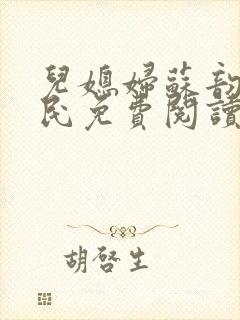 兒媳婦蘇韵
民免費閱讀
胡啓生